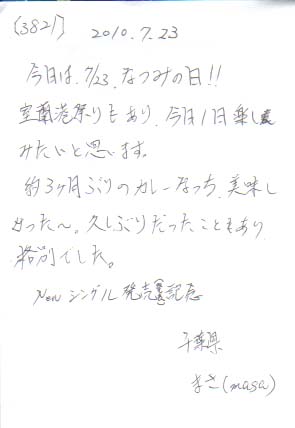 [3821] 2010.7.23
今日は、7/23、なつみの日!!
室蘭港祭りもあり、今日1日楽し
みたいと思います。
約3ヶ月ぶりのカレーなっち、美味し
かった〜。久しぶりだったこともあり
格別でした。
Newシングル発売記念
千葉県
まさ(masa)